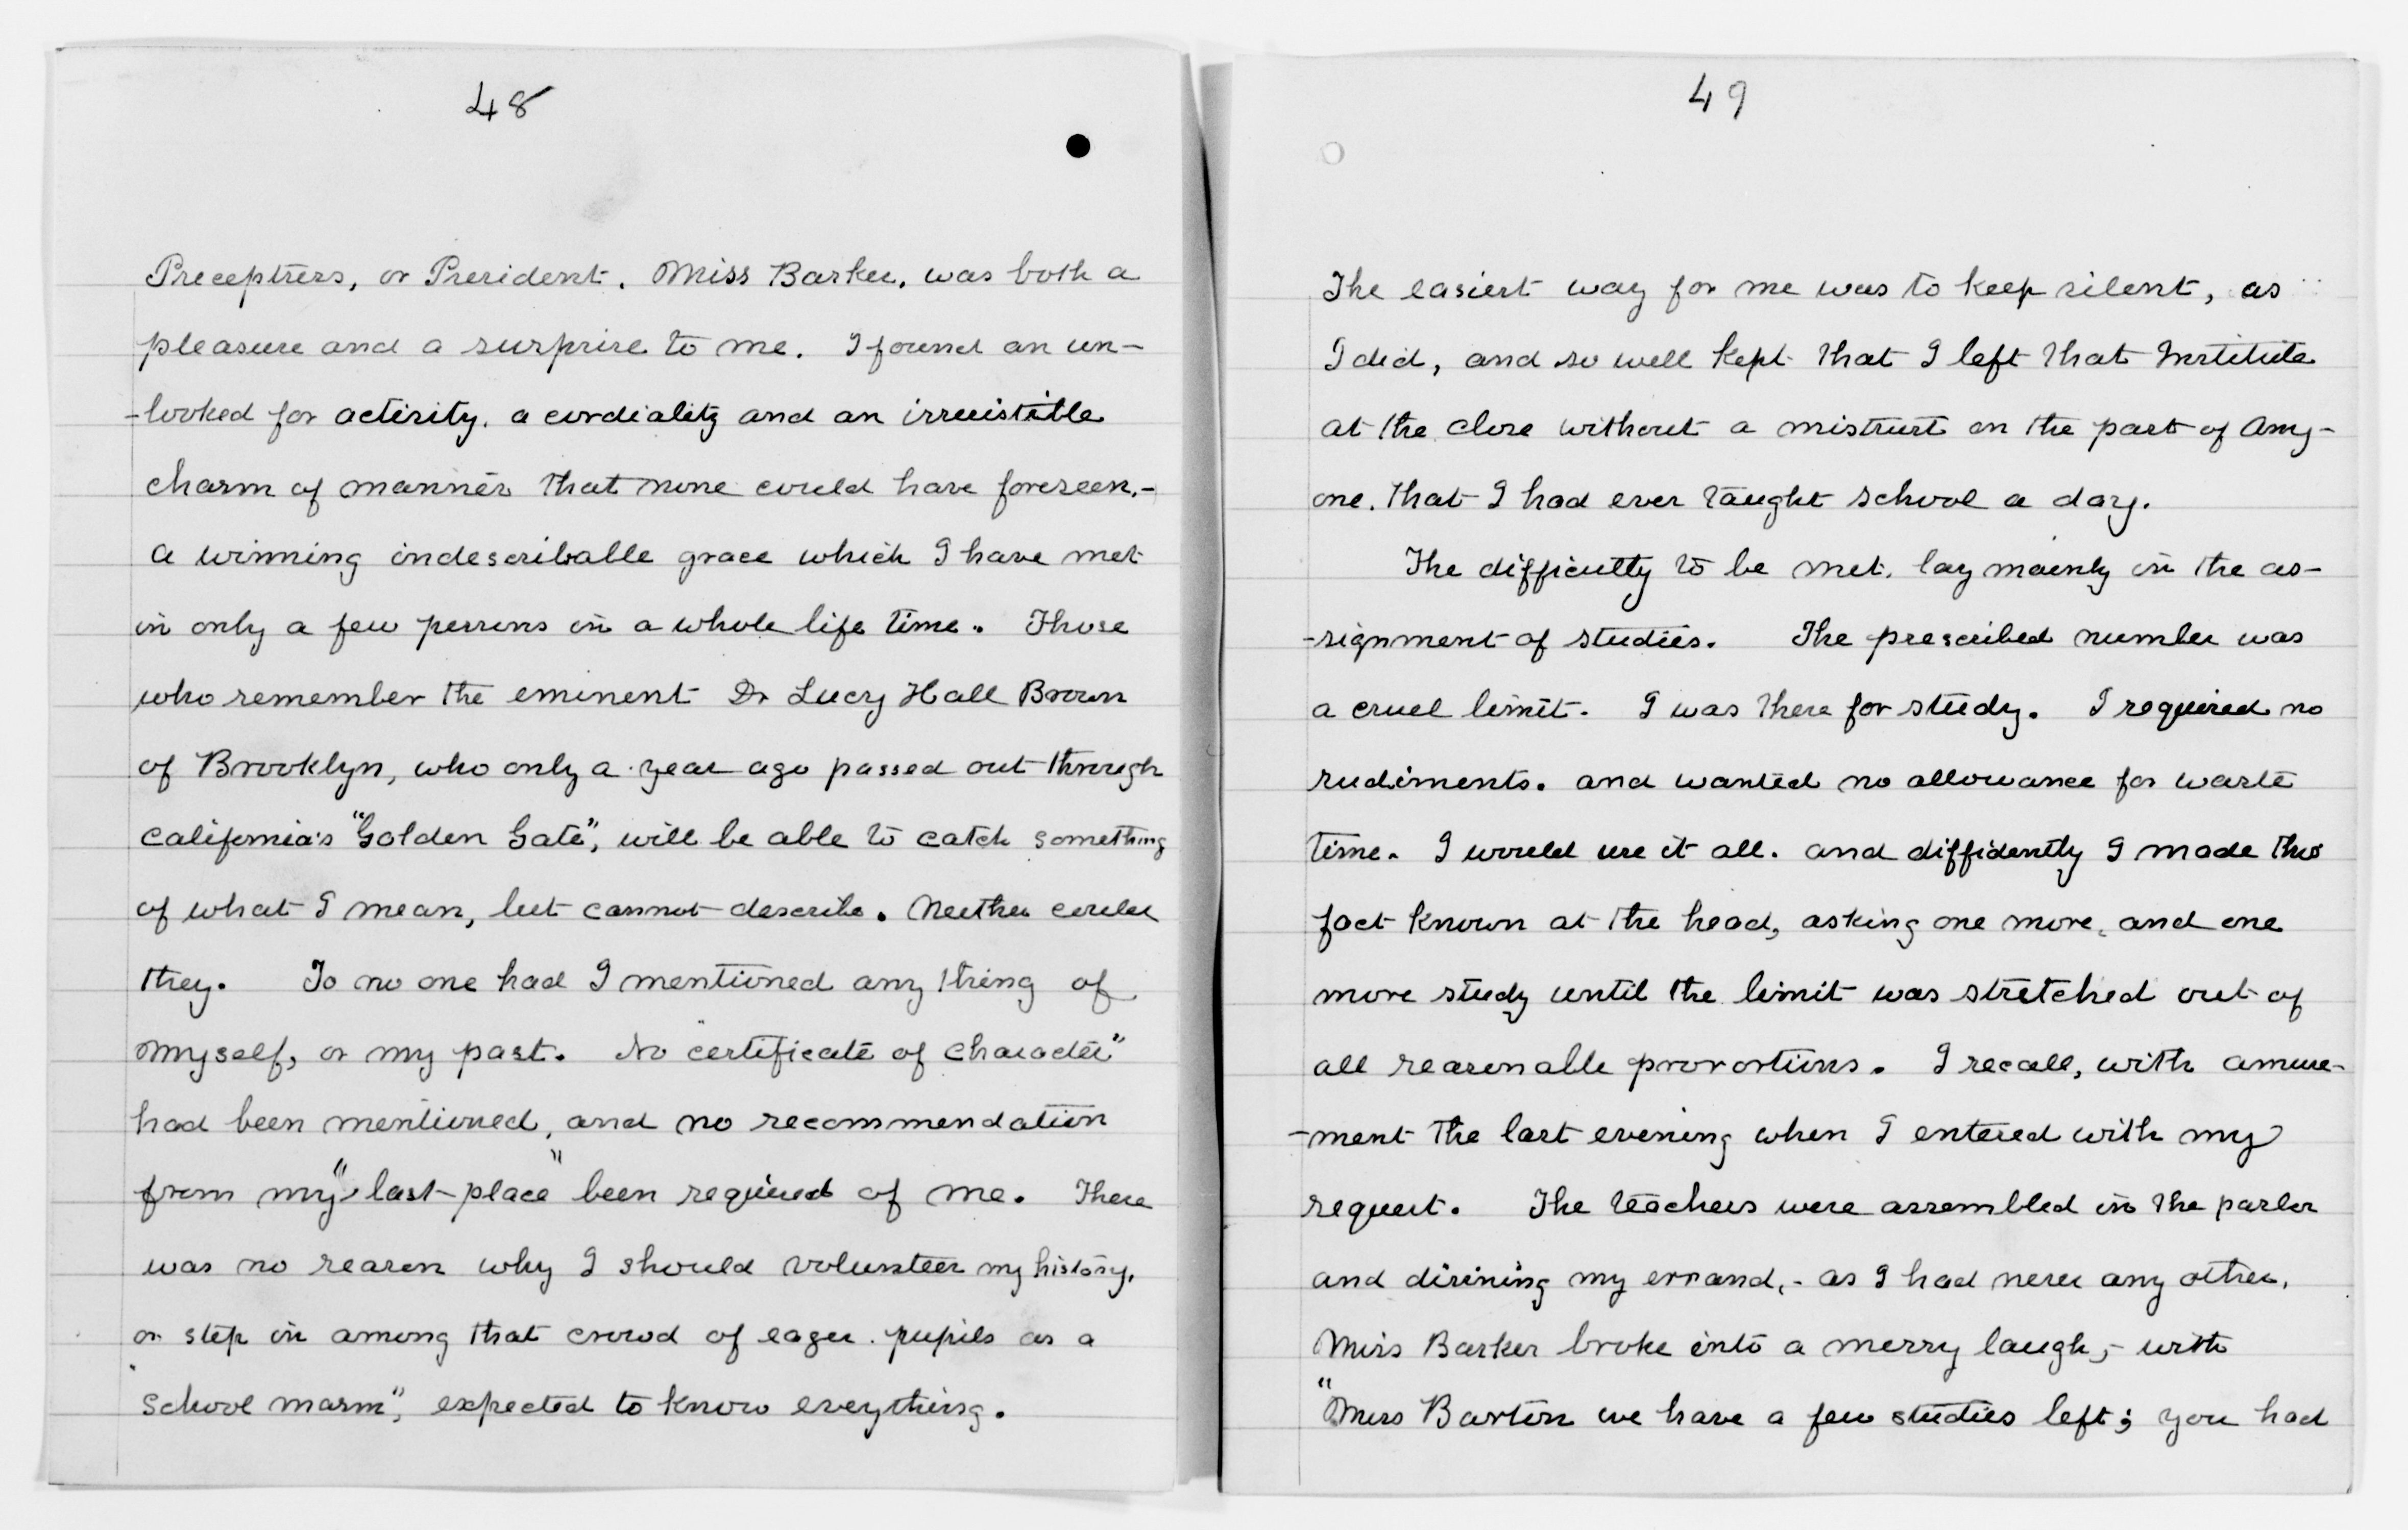 48
Preceptress, or President. Miss Barker, was both a
pleasure and a surprise to me. I found an un-
-looked for activity, a cordiality and an irresistible
charm of manner that none could have foreseen,-
a winning indescribable grace which I have met
in only a few persons in a whole life time. Those
who remember the eminent Dr Lucy Hall Brown
of Brooklyn, who only a year ago passed out through
California's "Golden Gate", will be able to catch something
of what I mean, but cannot describe. Neither could
they. To no one had I mentioned any thing of
myself, or my past. No "certificate of character"
had been mentioned, and no recommendation
from my "last place" been required of me. There
was no reason why I should volunteer my history,
or step in among that crowd of eager pupils as a
"school marm", expected to know everything.
49
The easiest way for me was to keep silent, as
I did, and so well kept that I left that Institute
at the close without a mistrust on the part of any-
one, that I had ever taught school a day.
The difficulty to be met, lay mainly in the as-
-signment of studies. The prescribed number was
a cruel limit. I was there for study. I required no
rudiments. and wanted no allowance for waste
time. I would use it all. and diffidently I made this
fact known at the head, asking one more, and one
more study until the limit was stretched out of
all reasonable proportions. I recall, with amuse-
-ment the last evening when I entered with my
request. The teachers were assembled in the parlor
and divining my errand,- as I had never any other,
Miss Barker broke into a merry laugh,- with
"Miss Barton we have a few studies left; you had